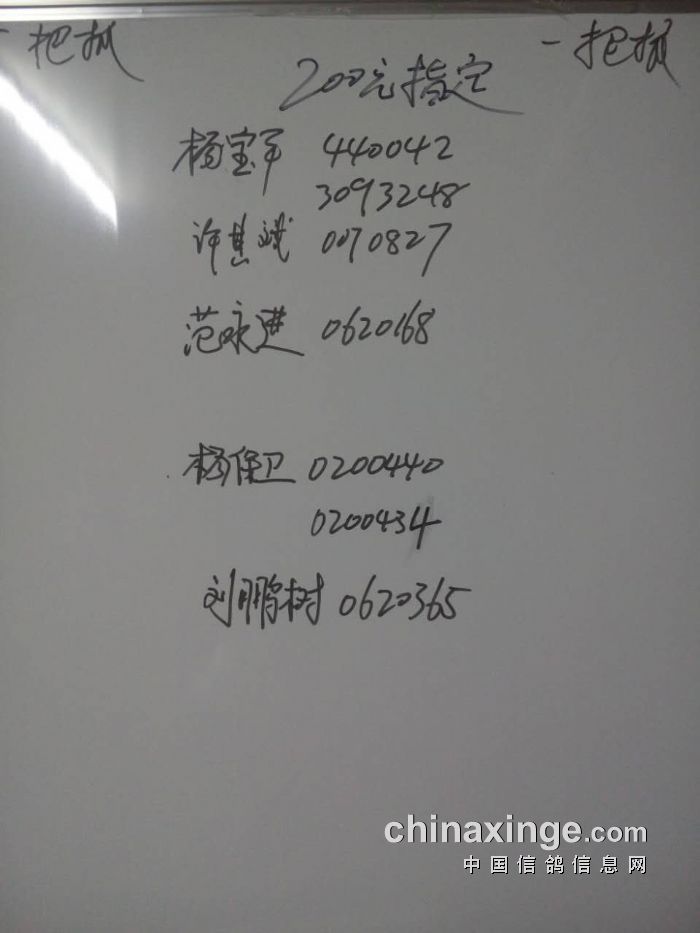 一把抓
200元指定
一把抓
杨宝军 440042
3093248
许其斌 0070827
范永进 0620168
杨保卫 0200440
0200434
刘鹏树 0620365
chinaxinge.com
中国信鸽信息网